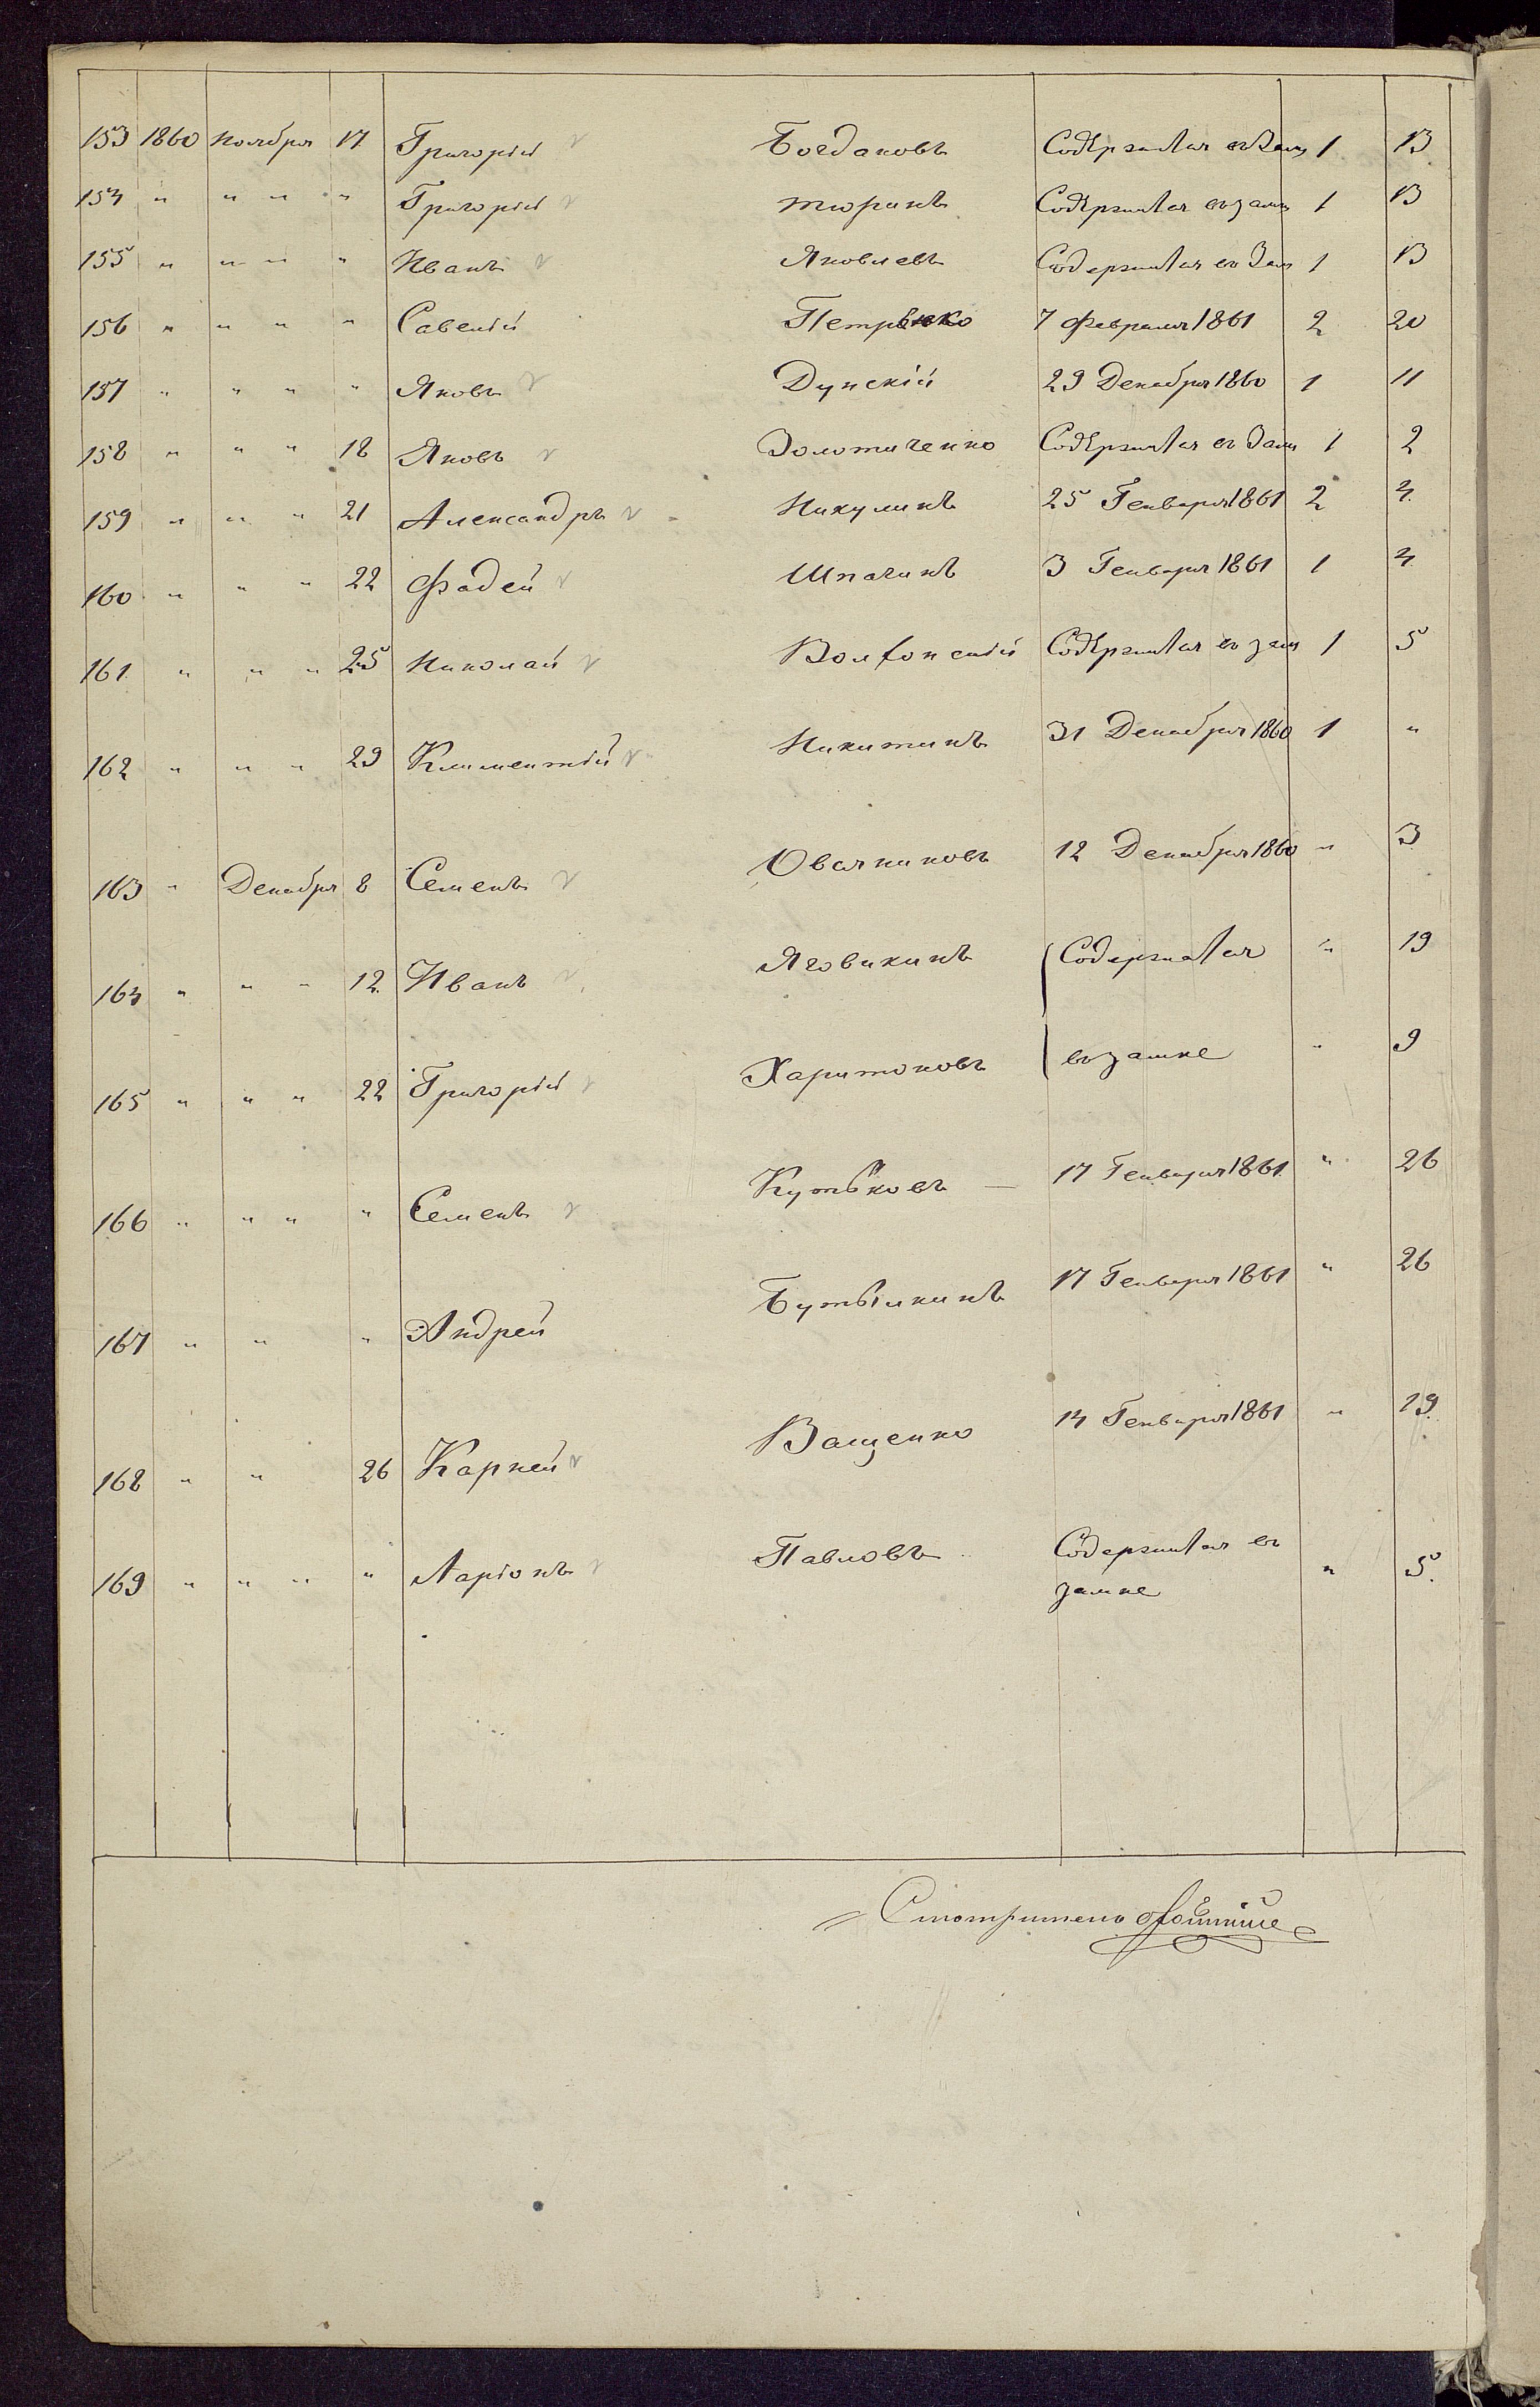 153 1860 Ноября 17 Григорій Богдановъ Содѣржится въ Зам 1 13
154 " " " " Григорій Тюринъ Содѣржится въ зам 1 13
155 " " " " Иванъ Яковлевъ Содержится въ Зам 1 13
156 " " " " Савелій Петренко 7 Февраля 1861 2 20
157 " " " " Яковъ Дунскій 29 Декабря 1860 1 11
158 " " " 18 Яковъ Золотиченко Содѣржится въ Зам 1 2
159 " " " 21 Александръ Никулинъ 25 Генваря 1861 2 4
160 " " " 22 Фадей Шпачинъ 3 Генваря 1861 1 4
161 " " " 25 Николай Волконскій Содѣржится въ зам 1 5
162 " " " 29 Климентій Никитинъ 31 Декабря 1860 1 "
163 " Декабря 8 Семенъ Овчяниковъ 12 Декабря 1860 " 3
164 " " " 12 Иванъ Яговикинъ Содержатся " 19
165 " " " 22 Григорій Харитоновъ въ замке " 9
166 " " " " Семенъ Кутьковъ — 17 Генваря 1861 " 26
167 " " " Андрей Бутылкинъ 17 Генваря 1861 " 26
168 " " 26 Карней Ващенко 14 Генваря 1861 " 19
169 " " " " Ларіонъ Павловъ Содержится въ " 5.
замке
Смотритель